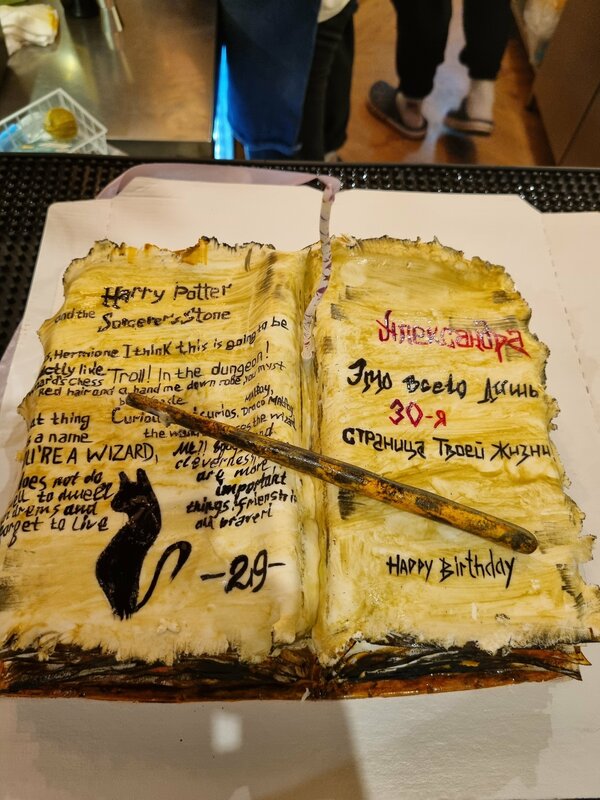 Harry Potter
and the
Sorcerer's Stone
Hermione I think this is going to be
ctly like
Troll! In the dungeon!
ard's chess
Red hair and a hand me down robe you must
Curiou
curios, Draco Malfoy
at thing
a name
U'RE A WIZARD,
cleverness
are more
important
things: friensh
oes not do
to dwell
dreams and
rget to live
-29-
Александра
Это всего лишь
30-я
страница Твоей жизни
HAPPY Birthday